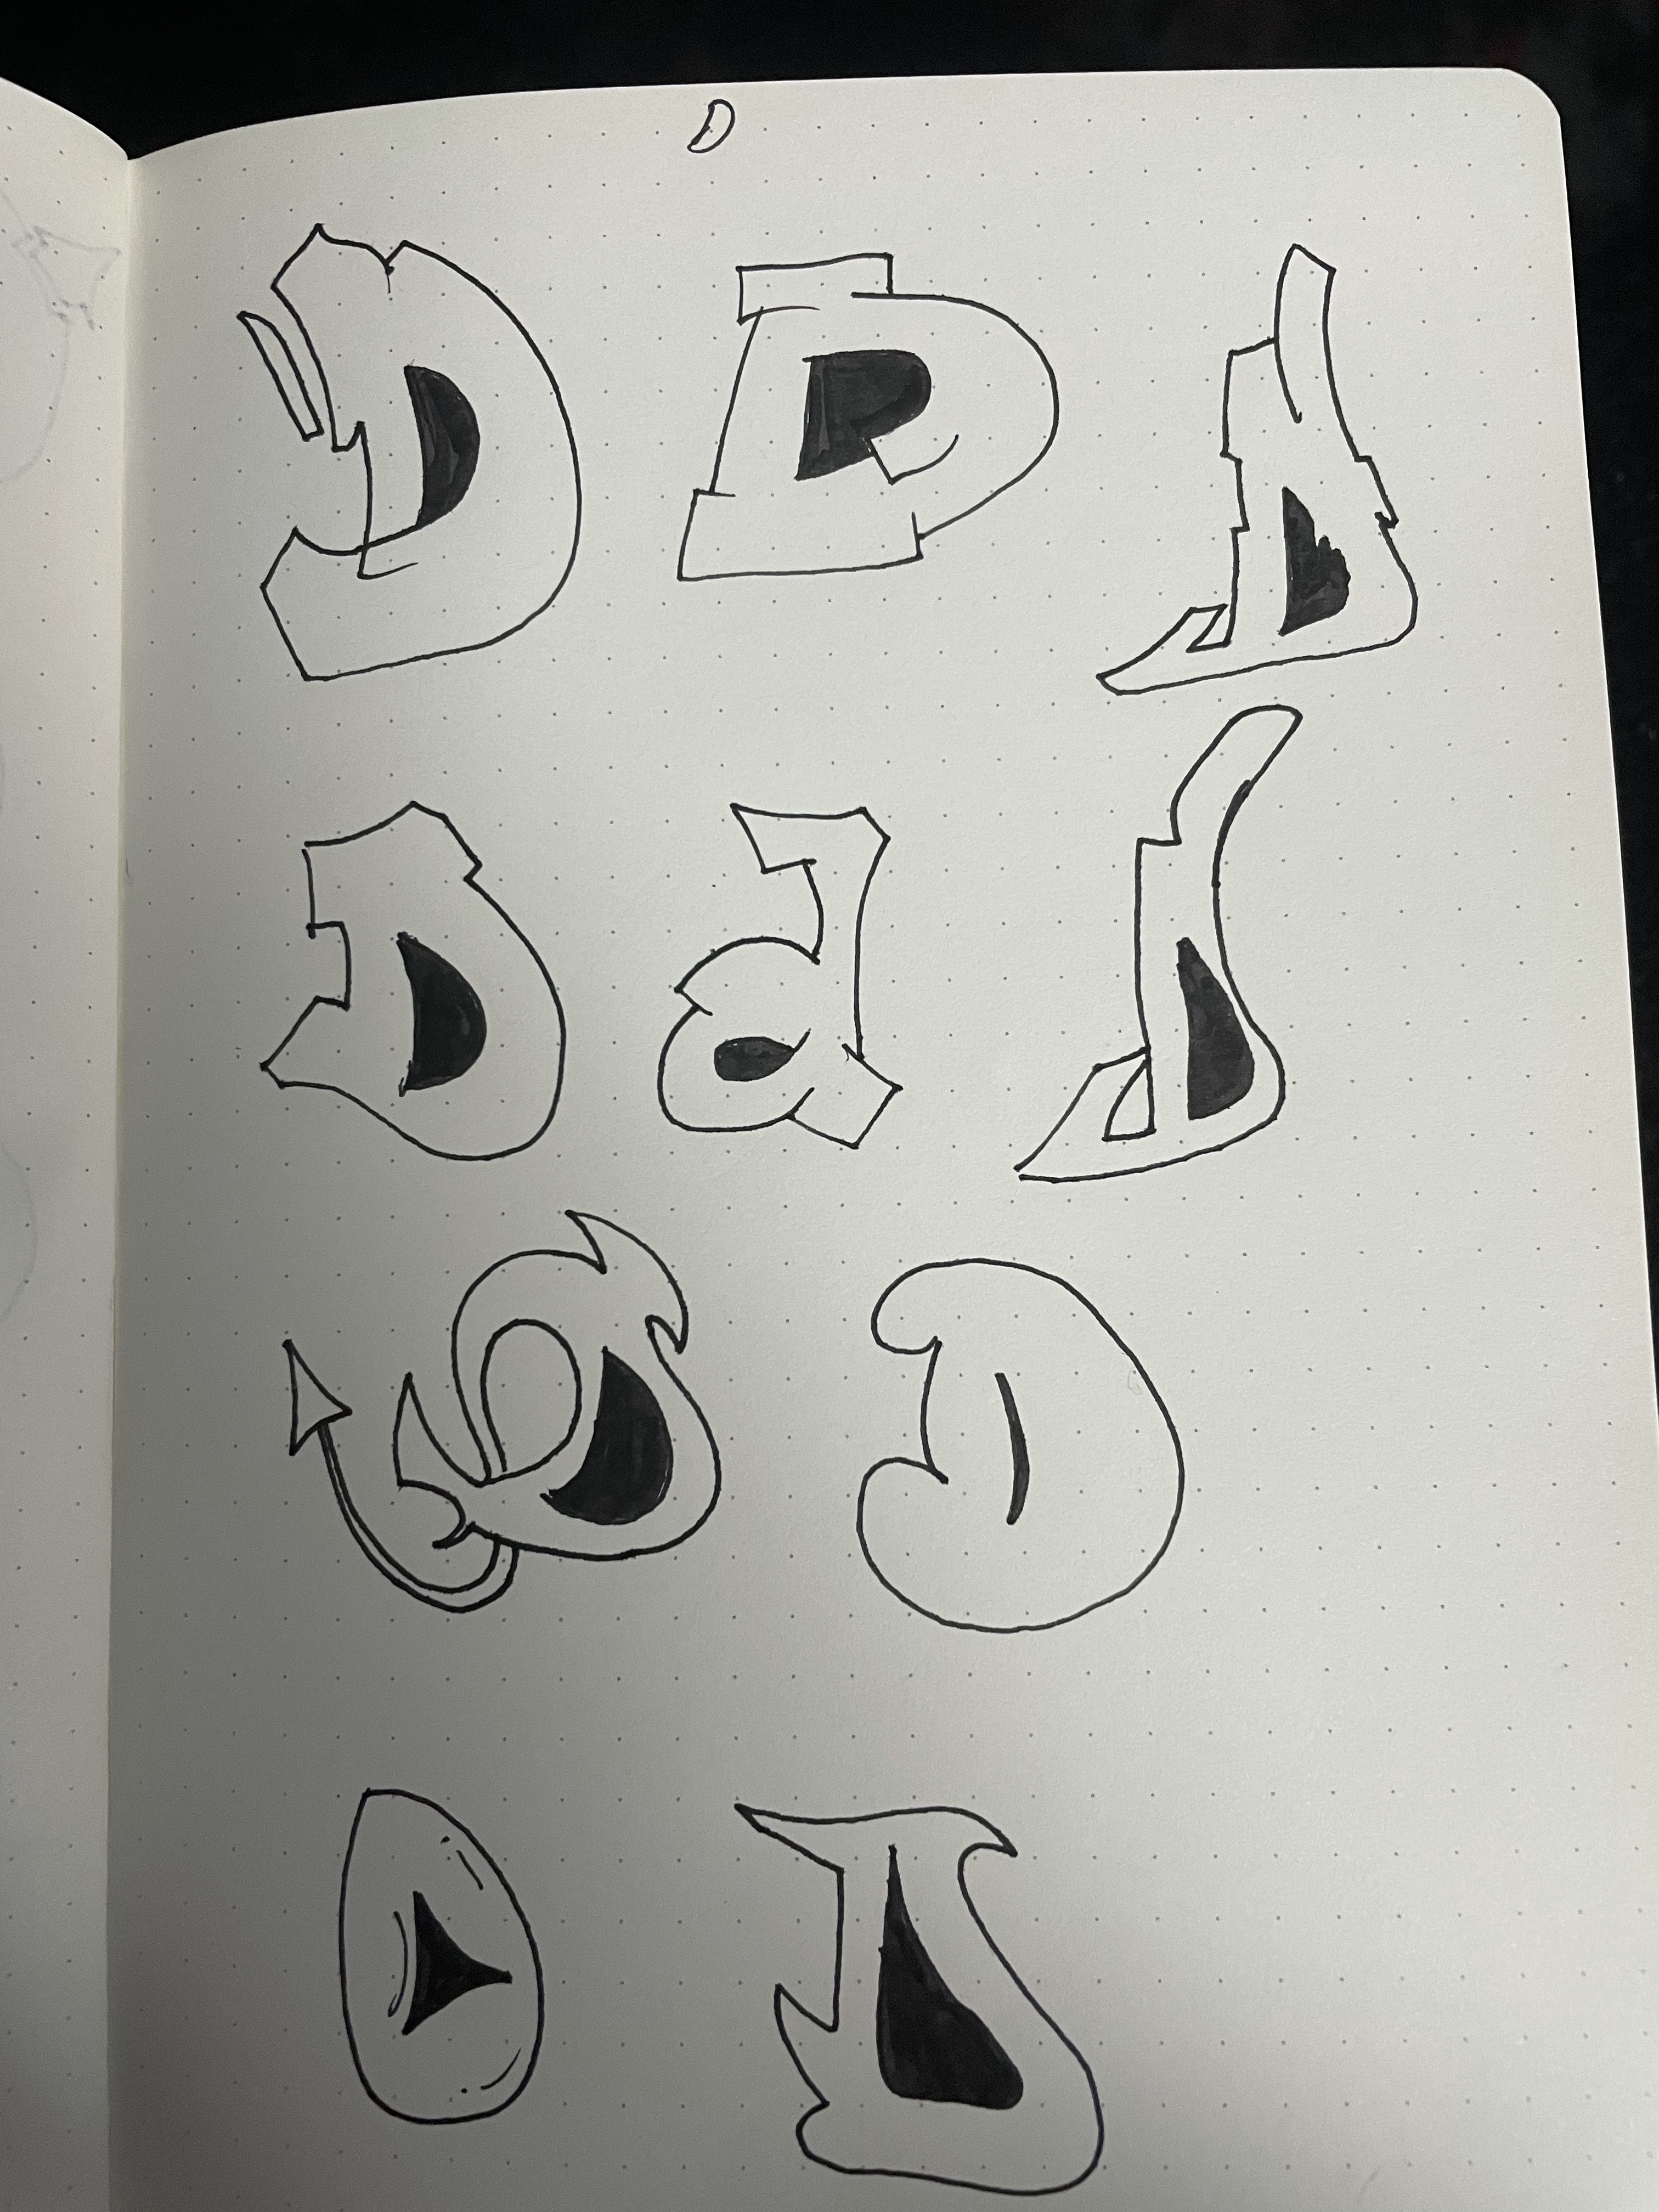 D
D D D
D d D
D D
D D